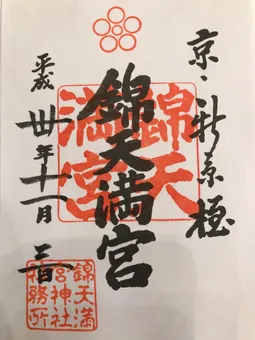 京・新京極
錦天満宮
錦天
満宮
平成卅年十一月三日
錦天満
宮神社
務所